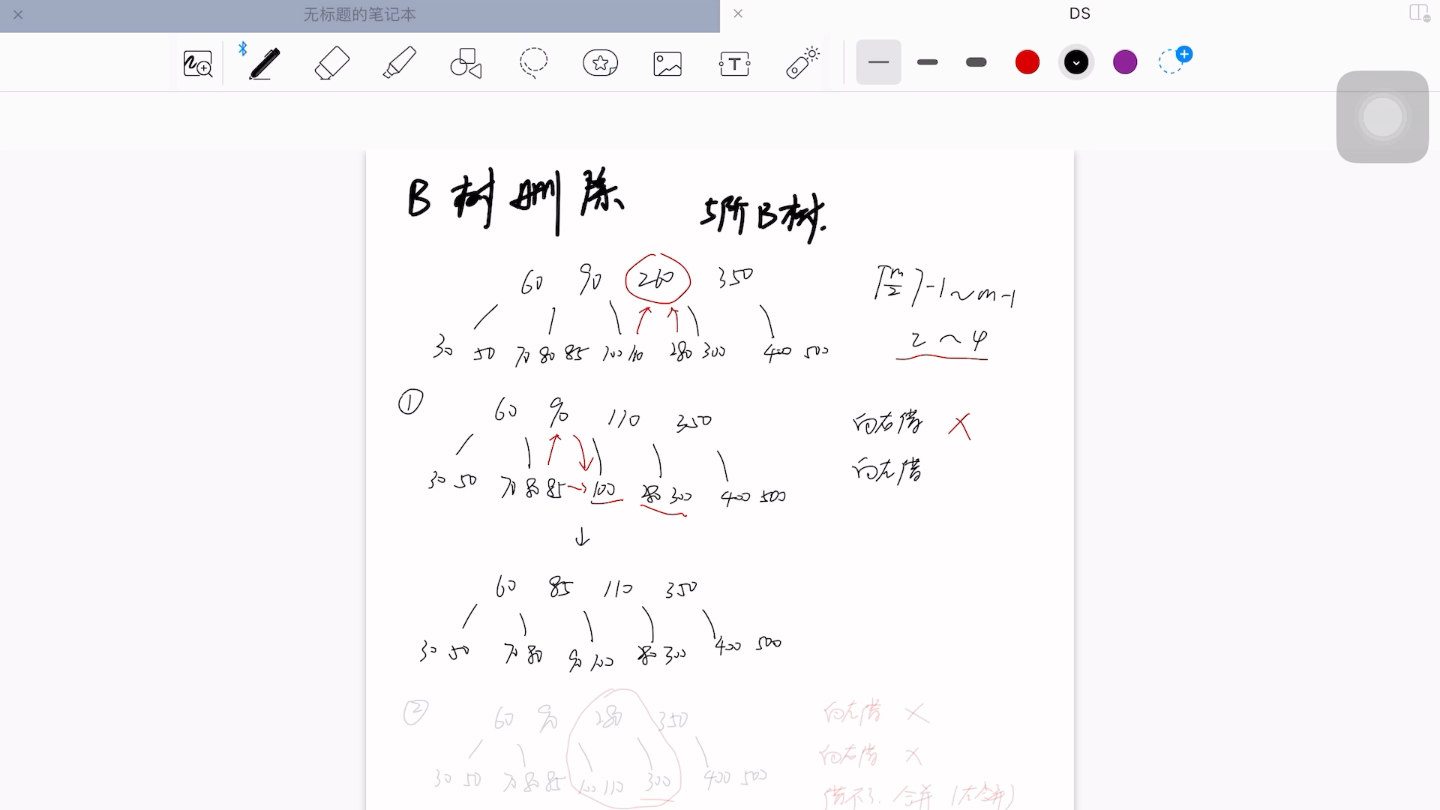 无标题的笔记本
DS
B树删除 5阶B树.
60 90 260 350
⌈m/2⌉-1~m-1
30 50 70 80 85 100 110 280 300 400 500
2~4
① 60 90 110 350
向右借 ×
30 50 70 80 85 → 100 280 300 400 500
向左借
↓
60 85 110 350
30 50 70 80 90 100 280 300 400 500
② 60 90 280 350
向左借 ×
30 50 70 80 85 100 110 300 400 500
向右借 ×
借不了. 合并 (左合并)